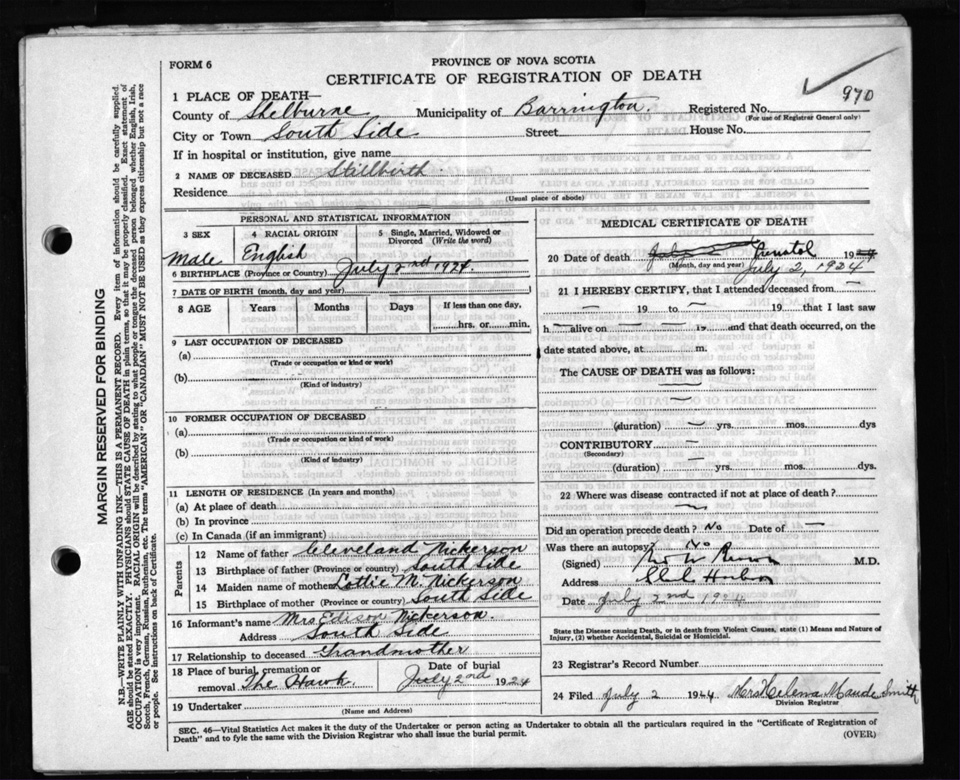 FORM 6
PROVINCE OF NOVA SCOTIA
CERTIFICATE OF REGISTRATION OF DEATH
970
1 PLACE OF DEATH—
County of Shelburne Municipality of Barrington. Registered No.
(For use of Registrar General only)
City or Town South Side Street House No.
If in hospital or institution, give name
2 NAME OF DECEASED Stillbirth
Residence
(Usual place of abode)
PERSONAL AND STATISTICAL INFORMATION
3 SEX 4 RACIAL ORIGIN 5 Single, Married, Widowed or
Divorced (Write the word)
Male English
6 BIRTHPLACE (Province or Country) July 2nd 1924.
7 DATE OF BIRTH (month, day and year)
8 AGE Years Months Days If less than one day,
hrs. or min.
9 LAST OCCUPATION OF DECEASED
(a)
(Trade or occupation or kind or work)
(b)
(Kind of industry)
10 FORMER OCCUPATION OF DECEASED
(a)
(Trade or occupation or kind of work)
(b)
(Kind of industry)
11 LENGTH OF RESIDENCE (In years and months)
(a) At place of death
(b) In province
(c) In Canada (if an immigrant)
Parents
12 Name of father Cleveland Nickerson
13 Birthplace of father (Province or country) South Side
14 Maiden name of mother Lottie M. Nickerson
15 Birthplace of mother (Province or country) South Side
16 Informant's name Mrs Edison Nickerson.
Address South Side
17 Relationship to deceased Grandmother
18 Place of burial, cremation or Date of burial
removal The Hawk July 2nd 1924
19 Undertaker
(Name and Address)
MEDICAL CERTIFICATE OF DEATH
20 Date of death July 19
(Month, day and year) July 2, 1924
21 I HEREBY CERTIFY, that I attended deceased from —
— 19 to — 19 that I last saw
h — alive on — — 19 and that death occurred, on the
date stated above, at m.
The CAUSE OF DEATH was as follows:
—
—
(duration) — yrs. mos. dys
CONTRIBUTORY —
(Secondary)
(duration) — yrs. mos. dys.
22 Where was disease contracted if not at place of death?
Did an operation precede death? No Date of —
Was there an autopsy? No
(Signed) M.D.
Address
Date July 2nd 1924
State the Disease causing Death, or in death from Violent Causes, state (1) Means and Nature of
Injury, (2) whether Accidental, Suicidal or Homicidal.
23 Registrar's Record Number
24 Filed July 2 1924 Mrs Helena Maude Smith
Division Registrar
SEC. 46—Vital Statistics Act makes it the duty of the Undertaker or person acting as Undertaker to obtain all the particulars required in the "Certificate of Registration of
Death" and to fyle the same with the Division Registrar who shall issue the burial permit.
(OVER)
MARGIN RESERVED FOR BINDING
N.B.—WRITE PLAINLY WITH UNFADING INK—THIS IS A PERMANENT RECORD. Every item of information should be carefully supplied.
AGE should be stated EXACTLY. PHYSICIANS should STATE CAUSE OF DEATH in plain terms, so that it may be properly classified. Exact statement of
OCCUPATION is very important. RACIAL ORIGIN will be described by stating to what people or tongue the deceased person belonged whether English, Irish,
Scotch, French, German, Russian, Ruthenian, etc. The terms "AMERICAN" OR "CANADIAN" MUST NOT BE USED as they express citizenship but not a race
or people. See instructions on back of Certificate.